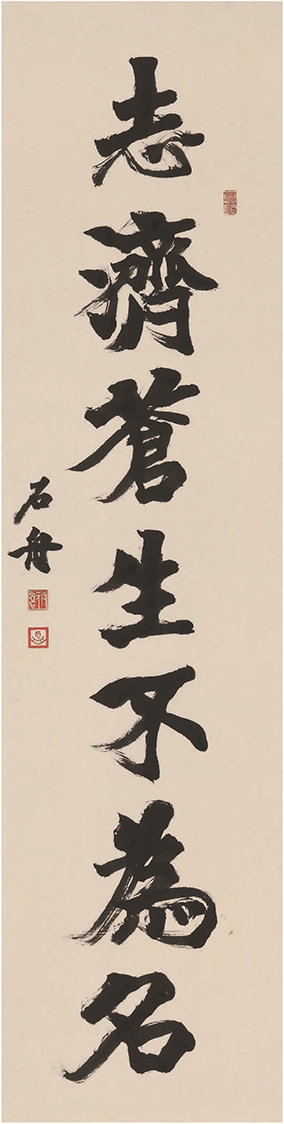 志濟蒼生不為名
石舟